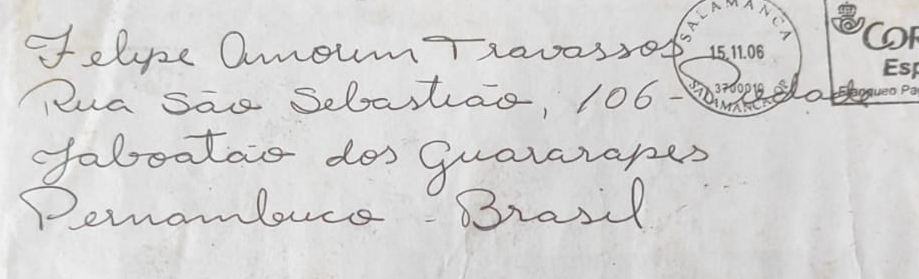 Felipe Amorim Travassos
Rua São Sebastião, 106 -
Jaboatão dos Guararapes
Pernambuco - Brasil
SALAMANCA
15.11.06
3700018
SALAMANCA
COR
Esp
Franqueo Pa